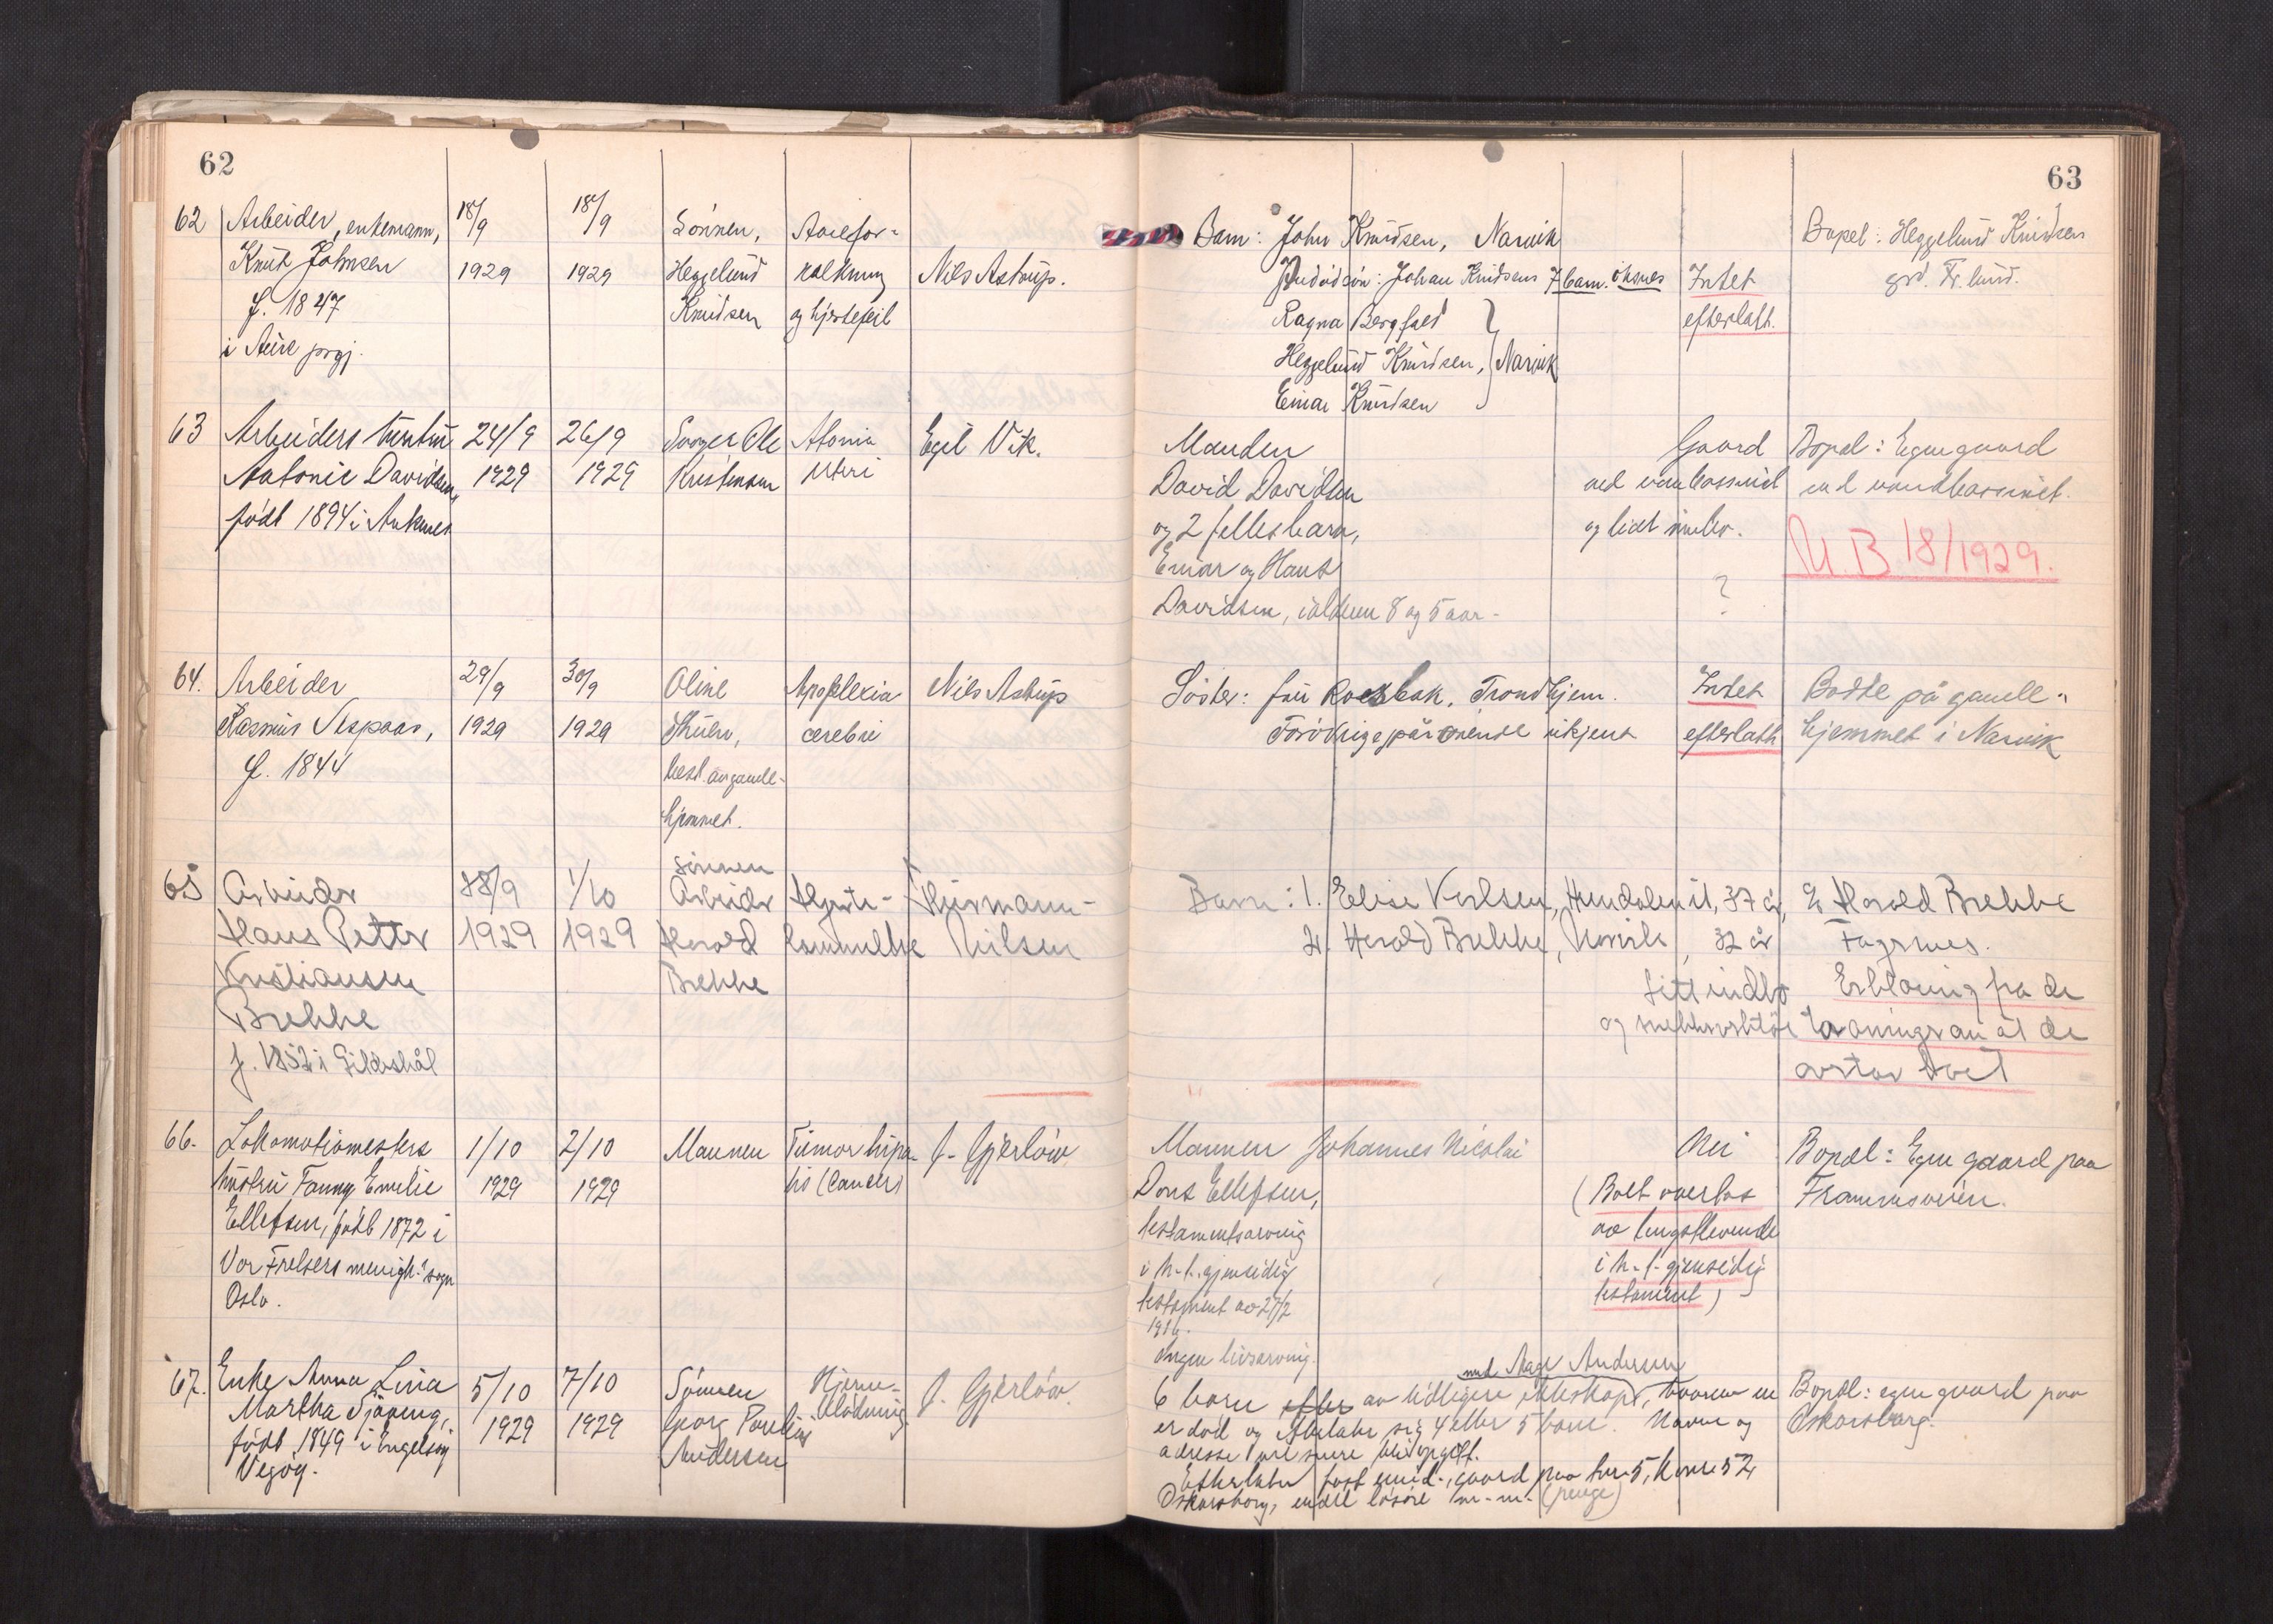 62
62 Arbeider, enkemann,
Knut Johnsen
f. 1847
i Aure prgj.
18/9
1929
18/9
1929
Sönnen,
Heggelund
Knudsen
Aarefor-
kalkning
og hjertefeil
Nils Astrup.
63 Arbeiders hustru
Antonie Davidsen,
födt 1894 i Ankenes
24/9
1929
26/9
1929
Svoger Ole
Kristensen
Atonia
uteri
Egil Vik.
64. Arbeider
Rasmus Aspaas,
f. 1844
29/9
1929
30/9
1929
Oline
best. av gamle-
hjemmet.
Apoplexia
cerebri
Nils Astrup
65 Arbeider
Hans Petter
Kristiansen
Brekke
f. 1852 i Gildeskål
28/9
1929
1/10
1929
sönnen
Arbeider
Harald
Brekke
Hjerte-
lammelse
Thurmann-
Nilsen
66. Lokomotivmesters
hustru Fanny Emilie
Ellefsen, født 1872 i
Vor Frelsers menigh. sogn
Oslo.
1/10
1929
2/10
1929
Mannen
Tumor hepa-
tis (Cancer)
J. Gjerlöw
67. Enke Anna Lina
Martha Sjåveng,
födt 1849 i
Vegöy.
5/10
1929
7/10
1929
Sönnen
Georg Paulius
Andersen
Hjerne-
blödning
J. Gjerlöw.
63
Barn: John Knudsen, Narvik
Johan Knudsens 7 barn. öksnes
Ragna Bergfald
Heggelund Knudsen, Narvik
Einar Knudsen
Intet
efterlatt.
Bopel: Heggelund Knudsen
grd. Fr. lund.
Manden
David Davidsen
og 2 fellesbarn,
Einar og Hans
Davidsen, i alderen 8 og 5 aar-
Gaard
ved vandbassinet
og lidt innbo.
?
Bopæl: Egen gaard
ved vandbassinet.
U.B. 18/1929.
Söster: fru Rosbak, Trondhjem.
Forövrig pårörende ukjent
Intet
efterlatt
Bodde på gamle-
hjemmet i Narvik
Barn: 1. Elise Karlsen, 37 år,
2. Harald Brekke, Narvik, 32 år
Litt indbo
og snekkerverktöi
E. Harald Brekke
Fagernes.
Erklæring fra de
avstar boet
Mannen Johannes Nicolai
Dons Ellefsen,
testamentsarving
i h. t. gjensidig
testament av 27/2
1916.
Ingen livsarving.
Nei
(Boet overtas
av lengstlevende
i h. t. gjensidig
testament)
Bopæl: Egen gaard paa
Framnesveien.
med Aage Andersen
6 barn efter av tidligere ekteskap, hvorav en
er död og efterlater sig 4 eller 5 barn. Navne og
adresse vil senere bli opgitt.
Efterlater fast eiend., gaard paa
Oskarsborg, endel lösöre m. m. (penge)
Bopæl: egen gaard paa
Oskarsborg.